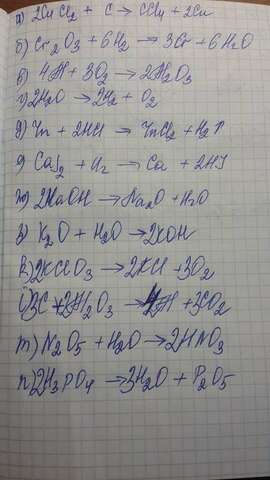 а) 2CuCl₂ + C → CCl₄ + 2Cu
б) Cr₂O₃ + 6H₂ → 3Cr + 6H₂O
в) 4Al + 3O₂ → 2Al₂O₃
г) 2H₂O → 2H₂ + O₂
д) Zn + 2HCl → ZnCl₂ + H₂↑
е) CaJ₂ + H₂ → Ca + 2HJ
ж) 2NaOH → Na₂O + H₂O
з) K₂O + H₂O → 2KOH
к) 2KClO₃ → 2KCl + 3O₂
3C + 2Al₂O₃ → 4Al + 3CO₂
m) N₂O₅ + H₂O → 2HNO₃
n) 2H₃PO₄ → 3H₂O + P₂O₅